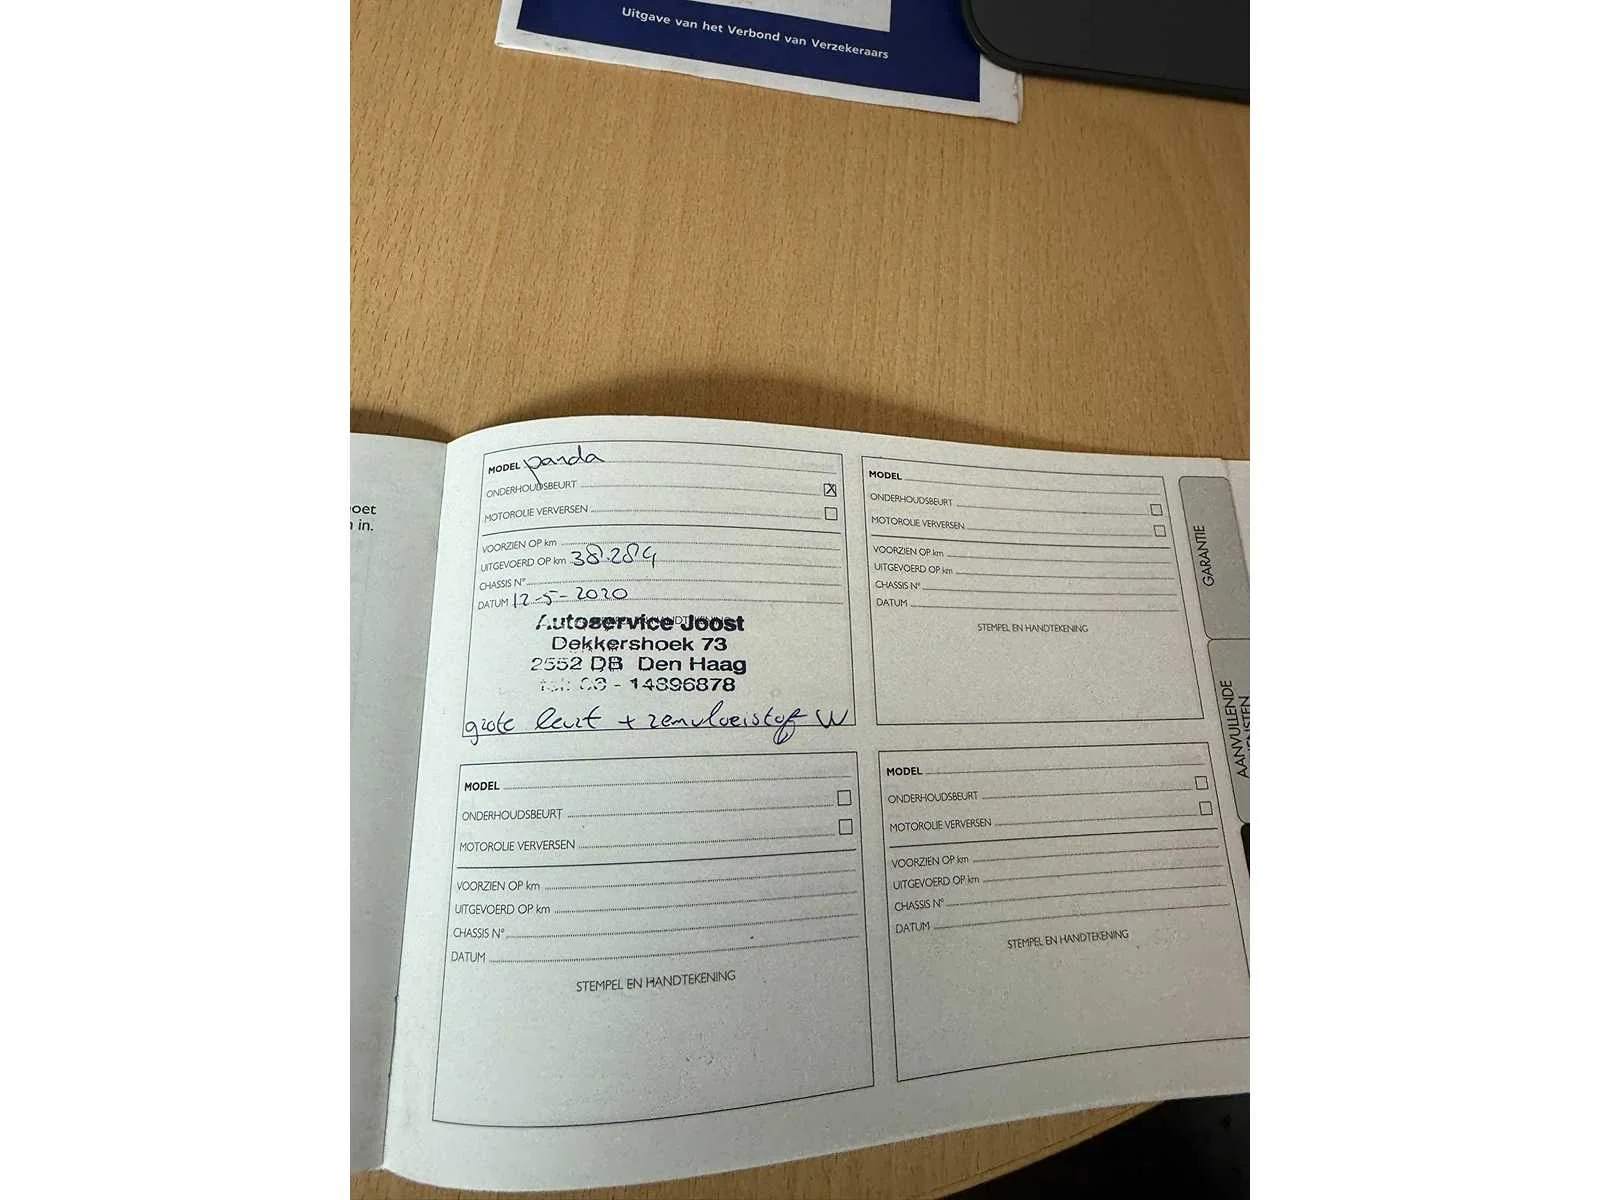 Uitgave van het Verbond van Verzekeraars
oet
n in.
MODEL panda
ONDERHOUDSBEURT X
MOTOROLIE VERVERSEN
VOORZIEN OP km
UITGEVOERD OP km 38.284
CHASSIS N°
DATUM 12-5-2020
Autoservice Joost
Dekkershoek 73
2552 DB Den Haag
tel: 06 - 14896878
grote beurt + remvloeistof W
MODEL
ONDERHOUDSBEURT
MOTOROLIE VERVERSEN
VOORZIEN OP km
UITGEVOERD OP km
CHASSIS N°
DATUM
STEMPEL EN HANDTEKENING
MODEL
ONDERHOUDSBEURT
MOTOROLIE VERVERSEN
VOORZIEN OP km
UITGEVOERD OP km
CHASSIS N°
DATUM
STEMPEL EN HANDTEKENING
MODEL
ONDERHOUDSBEURT
MOTOROLIE VERVERSEN
VOORZIEN OP km
UITGEVOERD OP km
CHASSIS N°
DATUM
STEMPEL EN HANDTEKENING
GARANTIE
AANVULLENDE